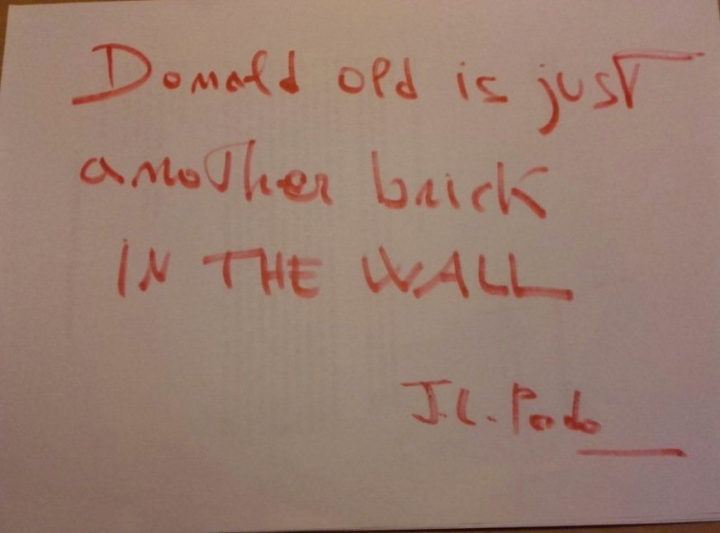 Donald old is just
another brick
IN THE WALL
J.C. Pardo